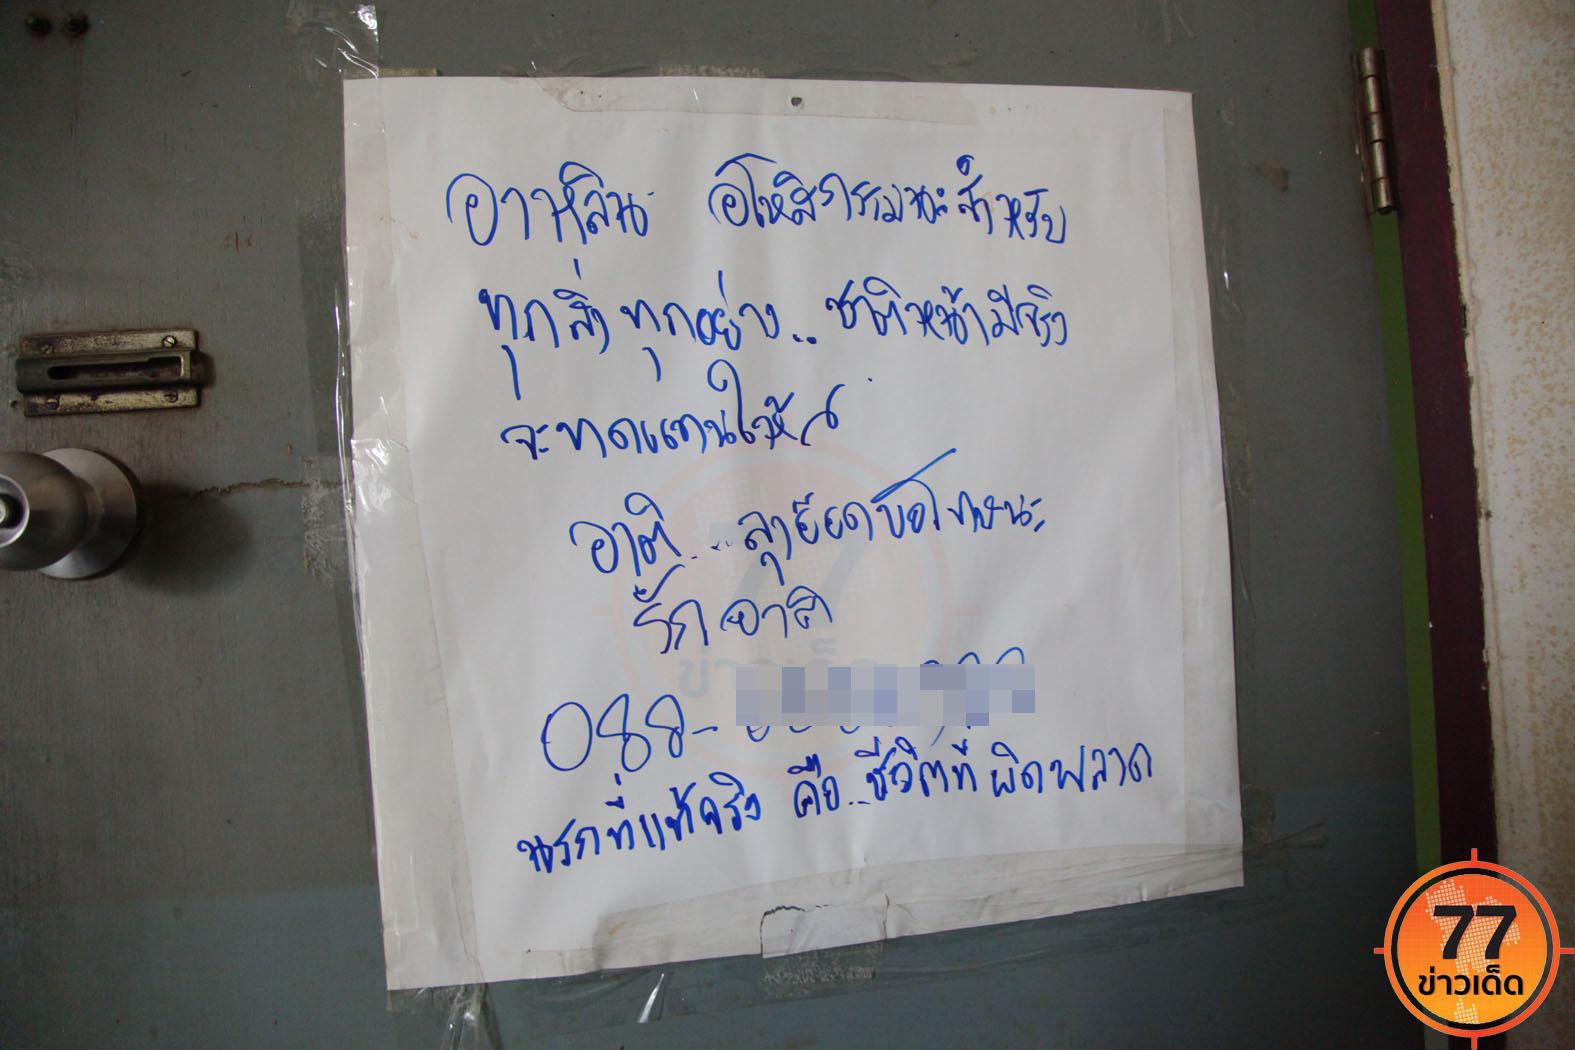 อาหลิน อโหสิกรรมนะสำหรับ
ทุกสิ่งทุกอย่าง.. ชาติหน้ามีจริง
จะทดแทนให้
อาติ... ขอโทษนะ
รักอาติ
088-
นรกที่แท้จริง คือ..ชีวิตที่ผิดพลาด
77
ข่าวเด็ด